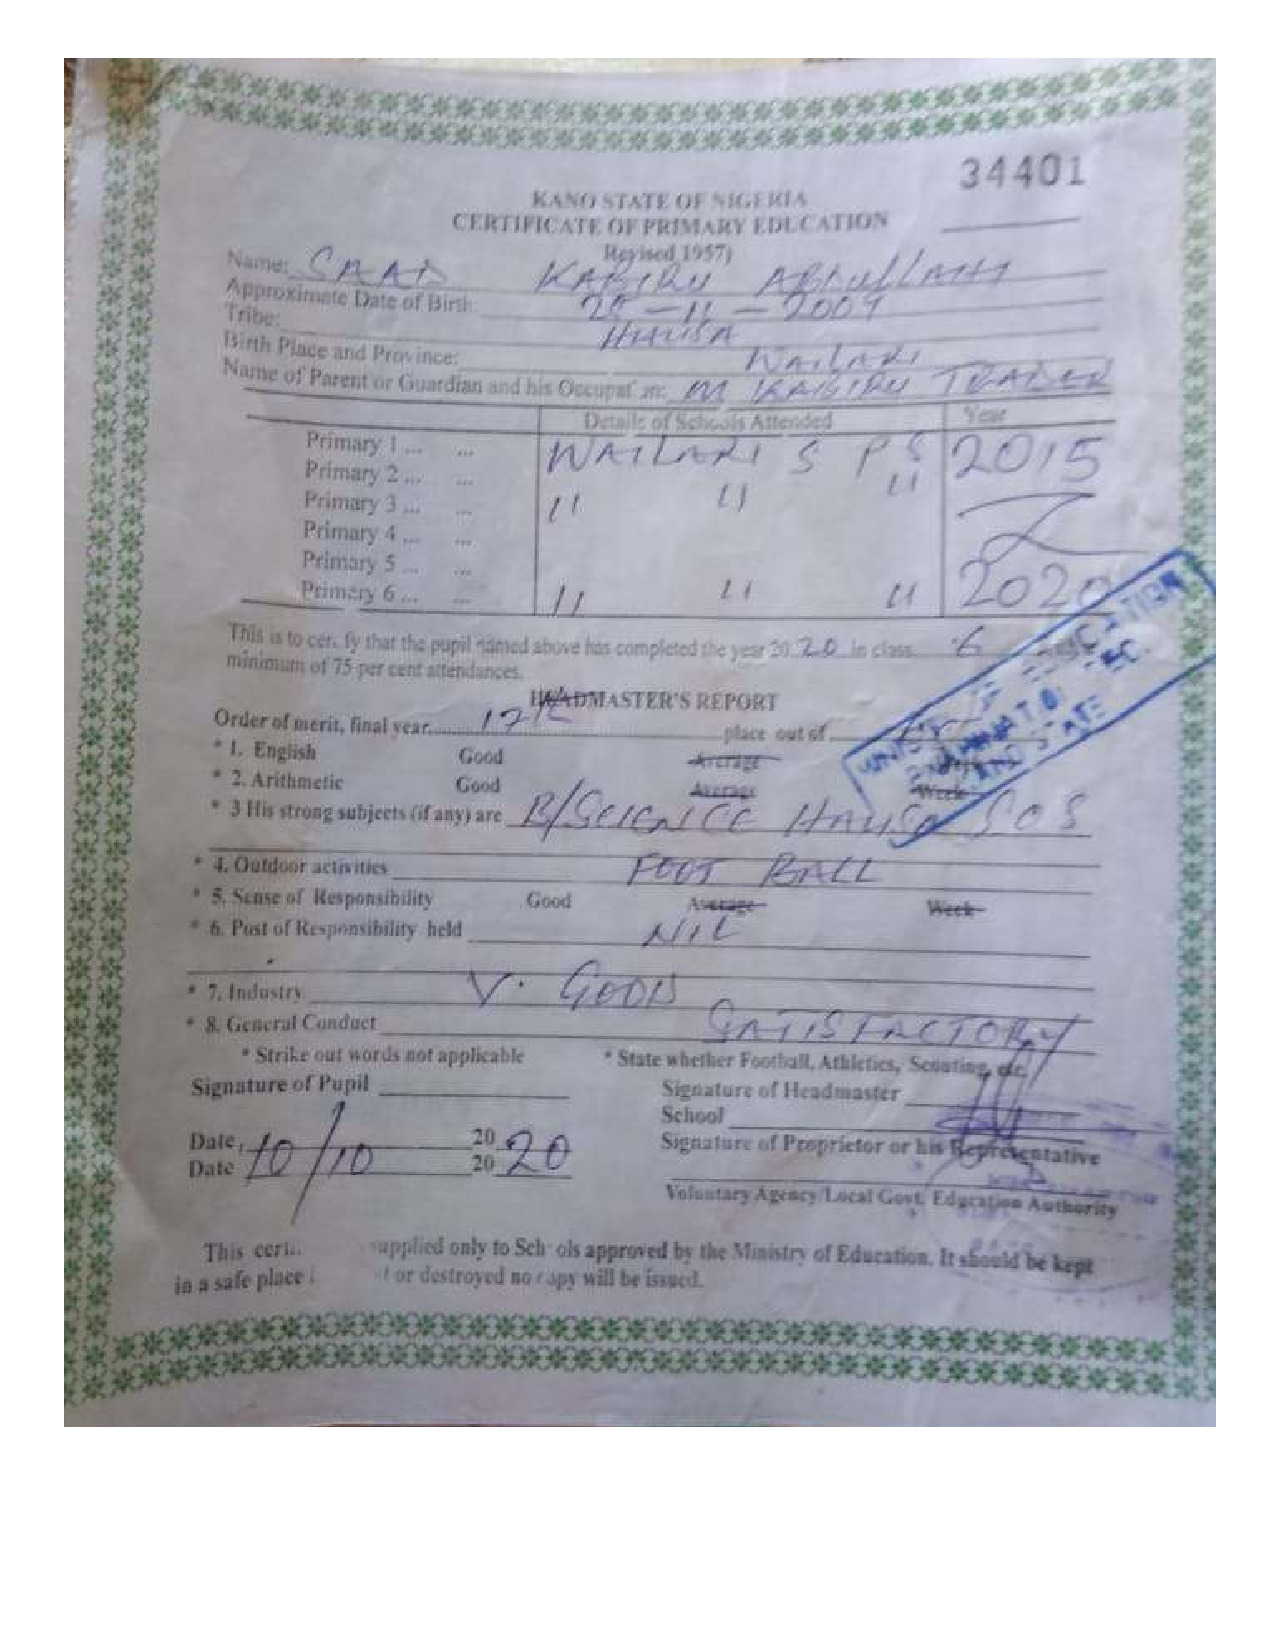 34401
KANO STATE OF NIGERIA
CERTIFICATE OF PRIMARY EDUCATION
Revised 1957)
Name: SAAD KABIRU ABDULLAHI
Approximate Date of Birth: -11-2009
Tribe: HAUSA
Birth Place and Province: WAILARI
Name of Parent or Guardian and his Occupat on: M KABIRU TRADER
Details of Schools Attended Year
Primary 1 ... ... WAILARI S P S 2015
Primary 2 ... ... "
Primary 3 ... ... " "
Primary 4 ... ...
Primary 5 ... ...
Primary 6 ... ... " " " 2020
This is to cer. fy that the pupil named above has completed the year 20 20 in class 6
minimum of 75 per cent attendances.
HEADMASTER'S REPORT
Order of merit, final year place out of
* 1. English Good Average
* 2. Arithmetic Good Average Week
* 3 His strong subjects (if any) are B/SCIENCE HAUSA SOS
* 4. Outdoor activities FOOT BALL
* 5. Sense of Responsibility Good Average Week
* 6. Post of Responsibility held NIL
* 7. Industry V. GOOD
* 8. General Conduct SATISFACTORY
* Strike out words not applicable * State whether Football, Athletics, Scouting, etc.
Signature of Pupil Signature of Headmaster
School
Date, 20 Signature of Proprietor or his Representative
Date 10/10 20 20
Voluntary Agency/Local Govt. Education Authority
This cert. supplied only to Sch ols approved by the Ministry of Education. It should be kept
in a safe place t or destroyed no copy will be issued.
STATE